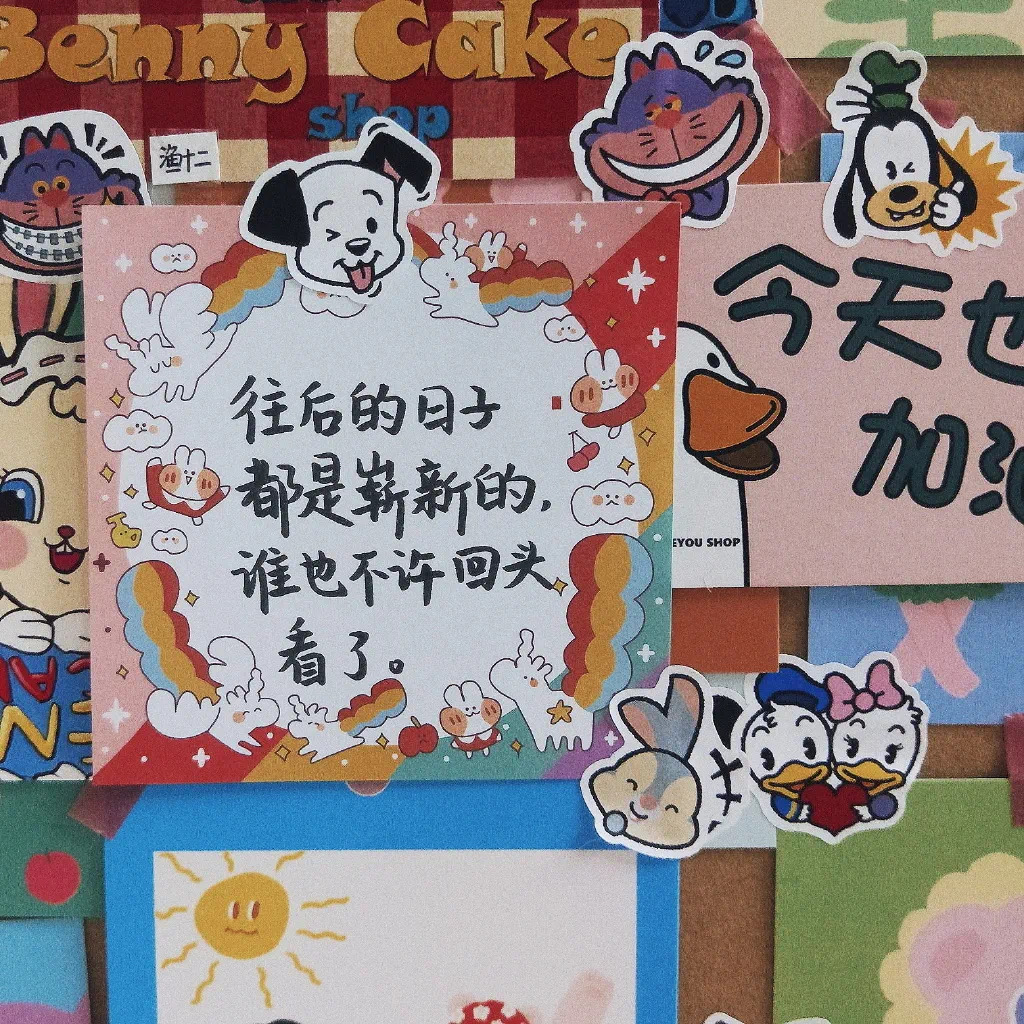 Benny Cake
shop
渔十二
往后的日子
都是崭新的,
谁也不许回头
看了。
今天也
加油
EYOU SHOP